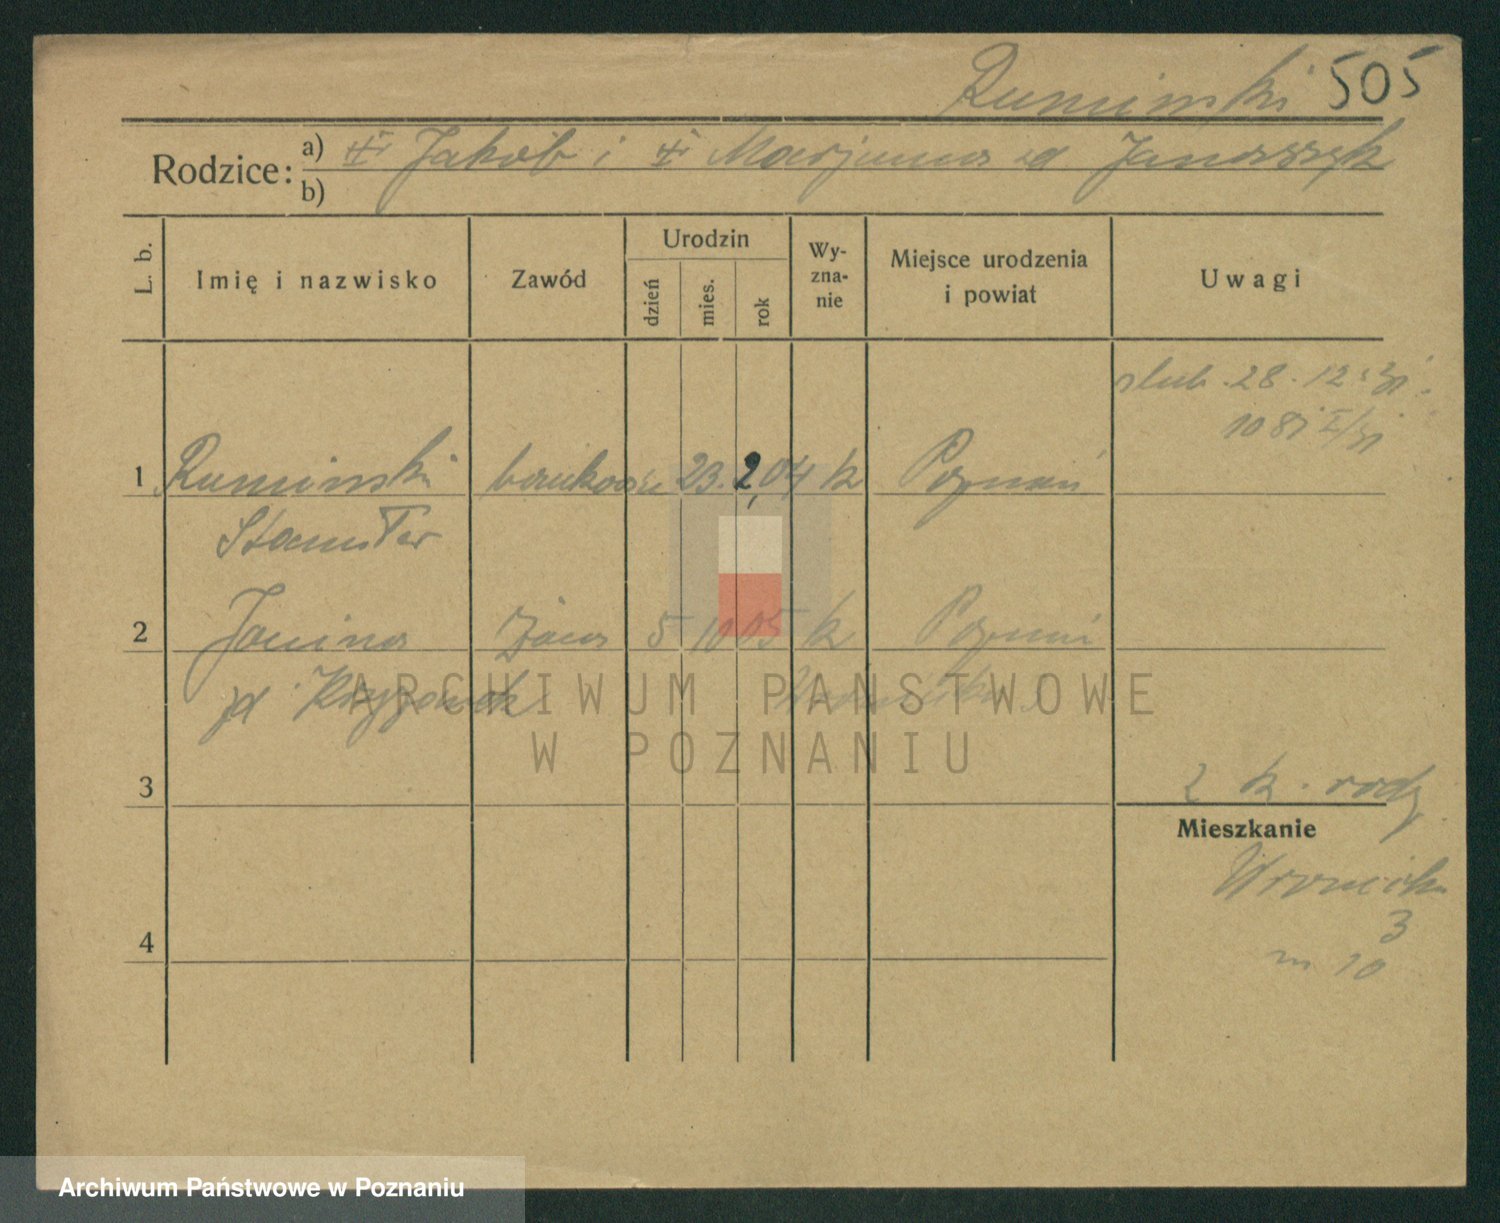 Rumiński 505
Rodzice: a) Jakób i Marjanna zd Janaszyk
b)
L. b.
Imię i nazwisko
Zawód
Urodzin
dzień
mies.
rok
Wy-
zna-
nie
Miejsce urodzenia
i powiat
Uwagi
ślub. 28.12.31.
1 Rumiński 23. 2, 04 k Poznań
Stanisław
2 Janina żona 5 10 05 k Poznań
zd
3
2 k. rodz
Mieszkanie
Wroniecka
3
m 10
4
ARCHIWUM PAŃSTWOWE
W POZNANIU
Archiwum Państwowe w Poznaniu